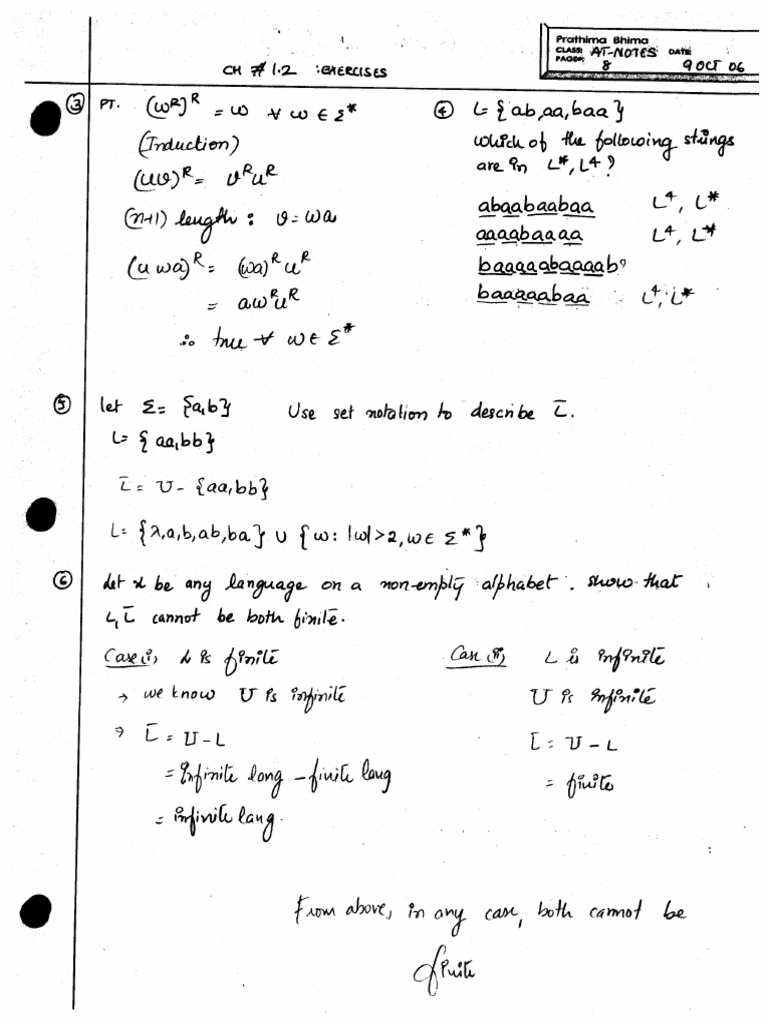 Prathima Bhima
CLASS: AT-NOTES DATE
PAGE#: 8 9 OCT 06
CH # 1.2 : EXERCISES
③ PT. (w^R)^R = w ∀ w ∈ Σ*
(Induction)
(uv)^R = v^R u^R
(n+1) length : v = wa
(u wa)^R = (wa)^R u^R
= a w^R u^R
∴ true ∀ w ∈ Σ*
④ L = {ab, aa, baa}
which of the following strings
are in L*, L⁴?
abaabaabaa L⁴, L*
aaaabaaaa L⁴, L*
baaaaabaaaab?
baaaaabaa L⁴, L*
⑤ let Σ = {a,b} Use set notation to describe L̅.
L = {aa,bb}
L̅ = U - {aa,bb}
L = {λ,a,b,ab,ba} ∪ {w: |w|>2, w ∈ Σ*}
⑥ Let L be any language on a non-empty alphabet. show that
L, L̅ cannot be both finite.
Case (i) L is finite
→ we know U is infinite
⇒ L̅ = U - L
= Infinite lang - finite lang
= infinite lang.
Case (ii) L is infinite
U is infinite
L̅ = U - L
= finite
From above, in any case, both cannot be
finite